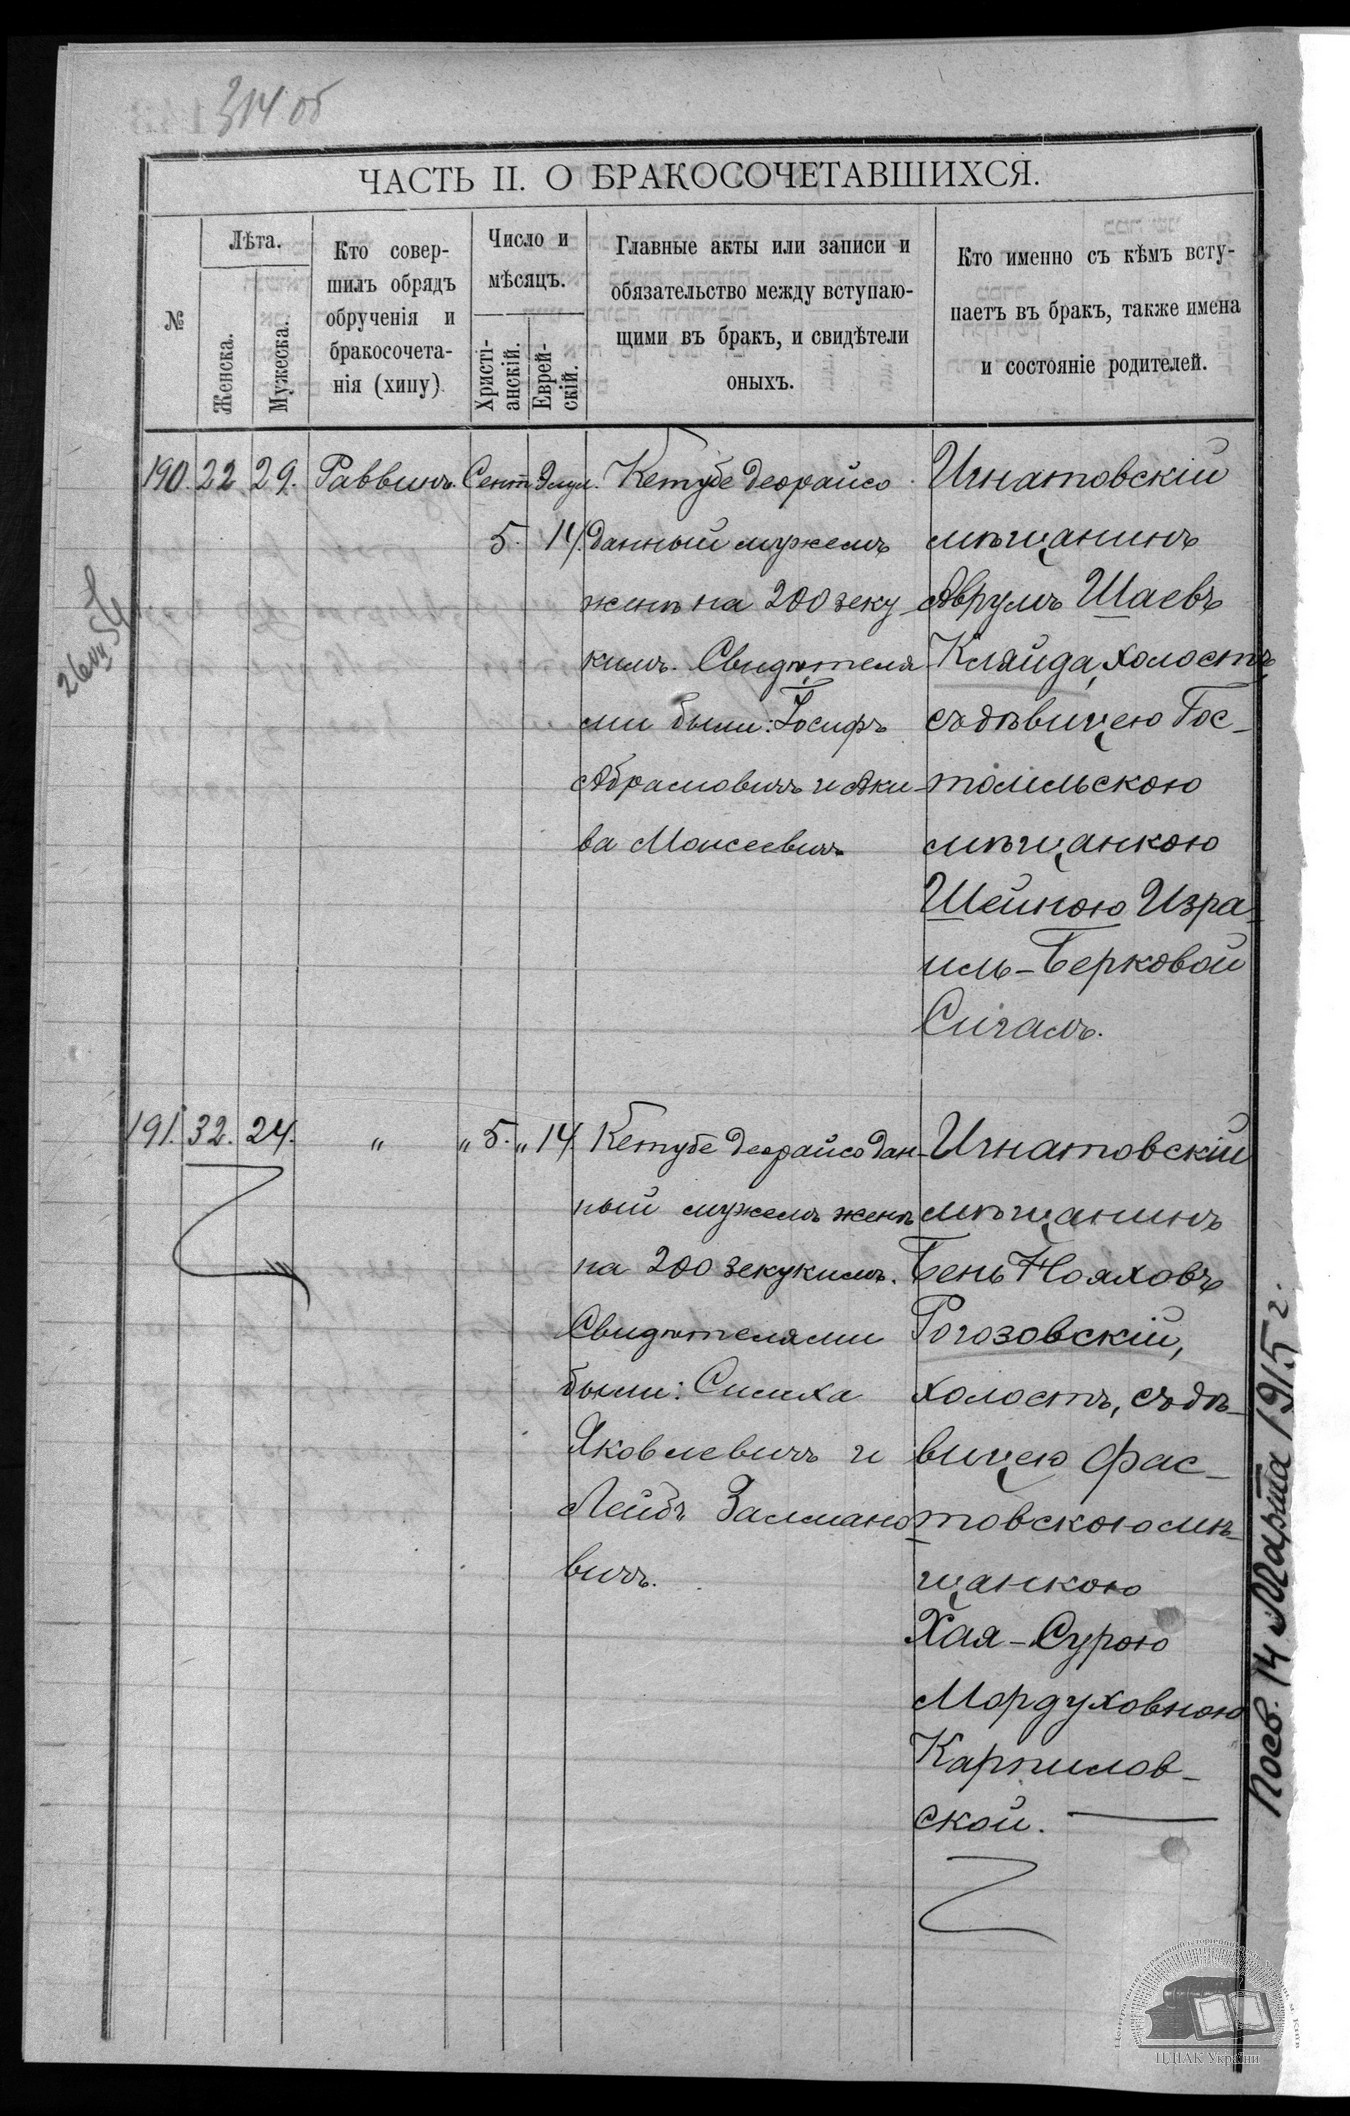 314 об
ЧАСТЬ II. О БРАКОСОЧЕТАВШИХСЯ.
№
Лѣта.
Женска.
Мужеска.
Кто совер-
шилъ обрядъ
обрученія и
бракосочета-
нія (хипу)
Число и
мѣсяцъ.
Христі-
анскій.
Еврей-
скій.
Главные акты или записи и
обязательство между вступаю-
щими въ бракъ, и свидѣтели
оныхъ.
Кто именно съ кѣмъ всту-
паетъ въ бракъ, также имена
и состояніе родителей.
190. 22 29. Раввинъ. Сент. Элул.
5. 14.
Кетубе деорайсо
данный мужемъ
женѣ на 200 зеку
кимъ. Свидѣтеля
ми были: Іосифъ
Абрамовичъ и Аки-
ва Моисеевичъ
Игнатовскій
мѣщанинъ
Аврумъ Шаевъ
Кляйда, холостъ,
съ дѣвицею Гос-
томльскою
мѣщанкою
Шейною Изра-
иль-Берковой
Сигалъ.
191. 32. 24. " " 5. " 14.
Кетубе деорайсо дан-
ный мужемъ женѣ
на 200 зекукимъ.
Свидѣтелями
были: Симха
Яковлевичъ и
Лейбъ Залмано
вичъ.
Игнатовскій
мѣщанинъ
Бень Нояховъ
Рогозовскій,
холостъ, съ дѣ-
вицею Фас-
товскою мѣ-
щанкою
Хая-Сурою
Мордуховною
Карпилов-
ской.
Посв. 14 Марта 1915 г.
ЦДІАК України